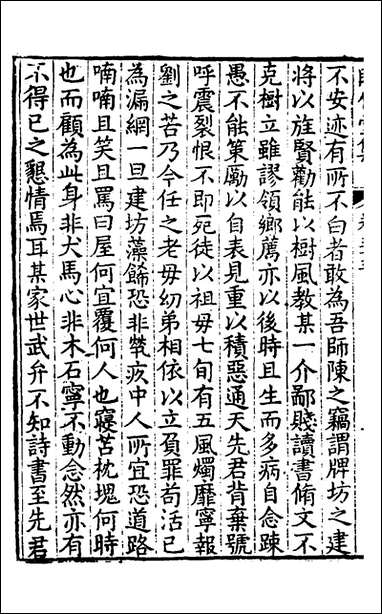 不安迹有所不白者敢為吾師陳之竊謂牌坊之建
將以旌賢勸能以樹風教某一介鄙賤讀書脩文不
克樹立雖謬領鄉薦亦以後時且生而多病自念踈
愚不能策勵以自表見重以積惡通天先君肯棄號
呼震裂恨不即死徒以祖母七旬有五風燭靡寧報
劉之苦乃今任之老母幼弟相依以立負罪苟活已
為漏網一旦建坊藻餙恐非煢疚中人所宜恐道路
喃喃且笑且罵曰屋何宜覆何人也寢苫枕塊何時
也而顧為此身非犬馬心非木石寧不動念然亦有
不得已之懇情焉耳某家世武弁不知詩書至先君